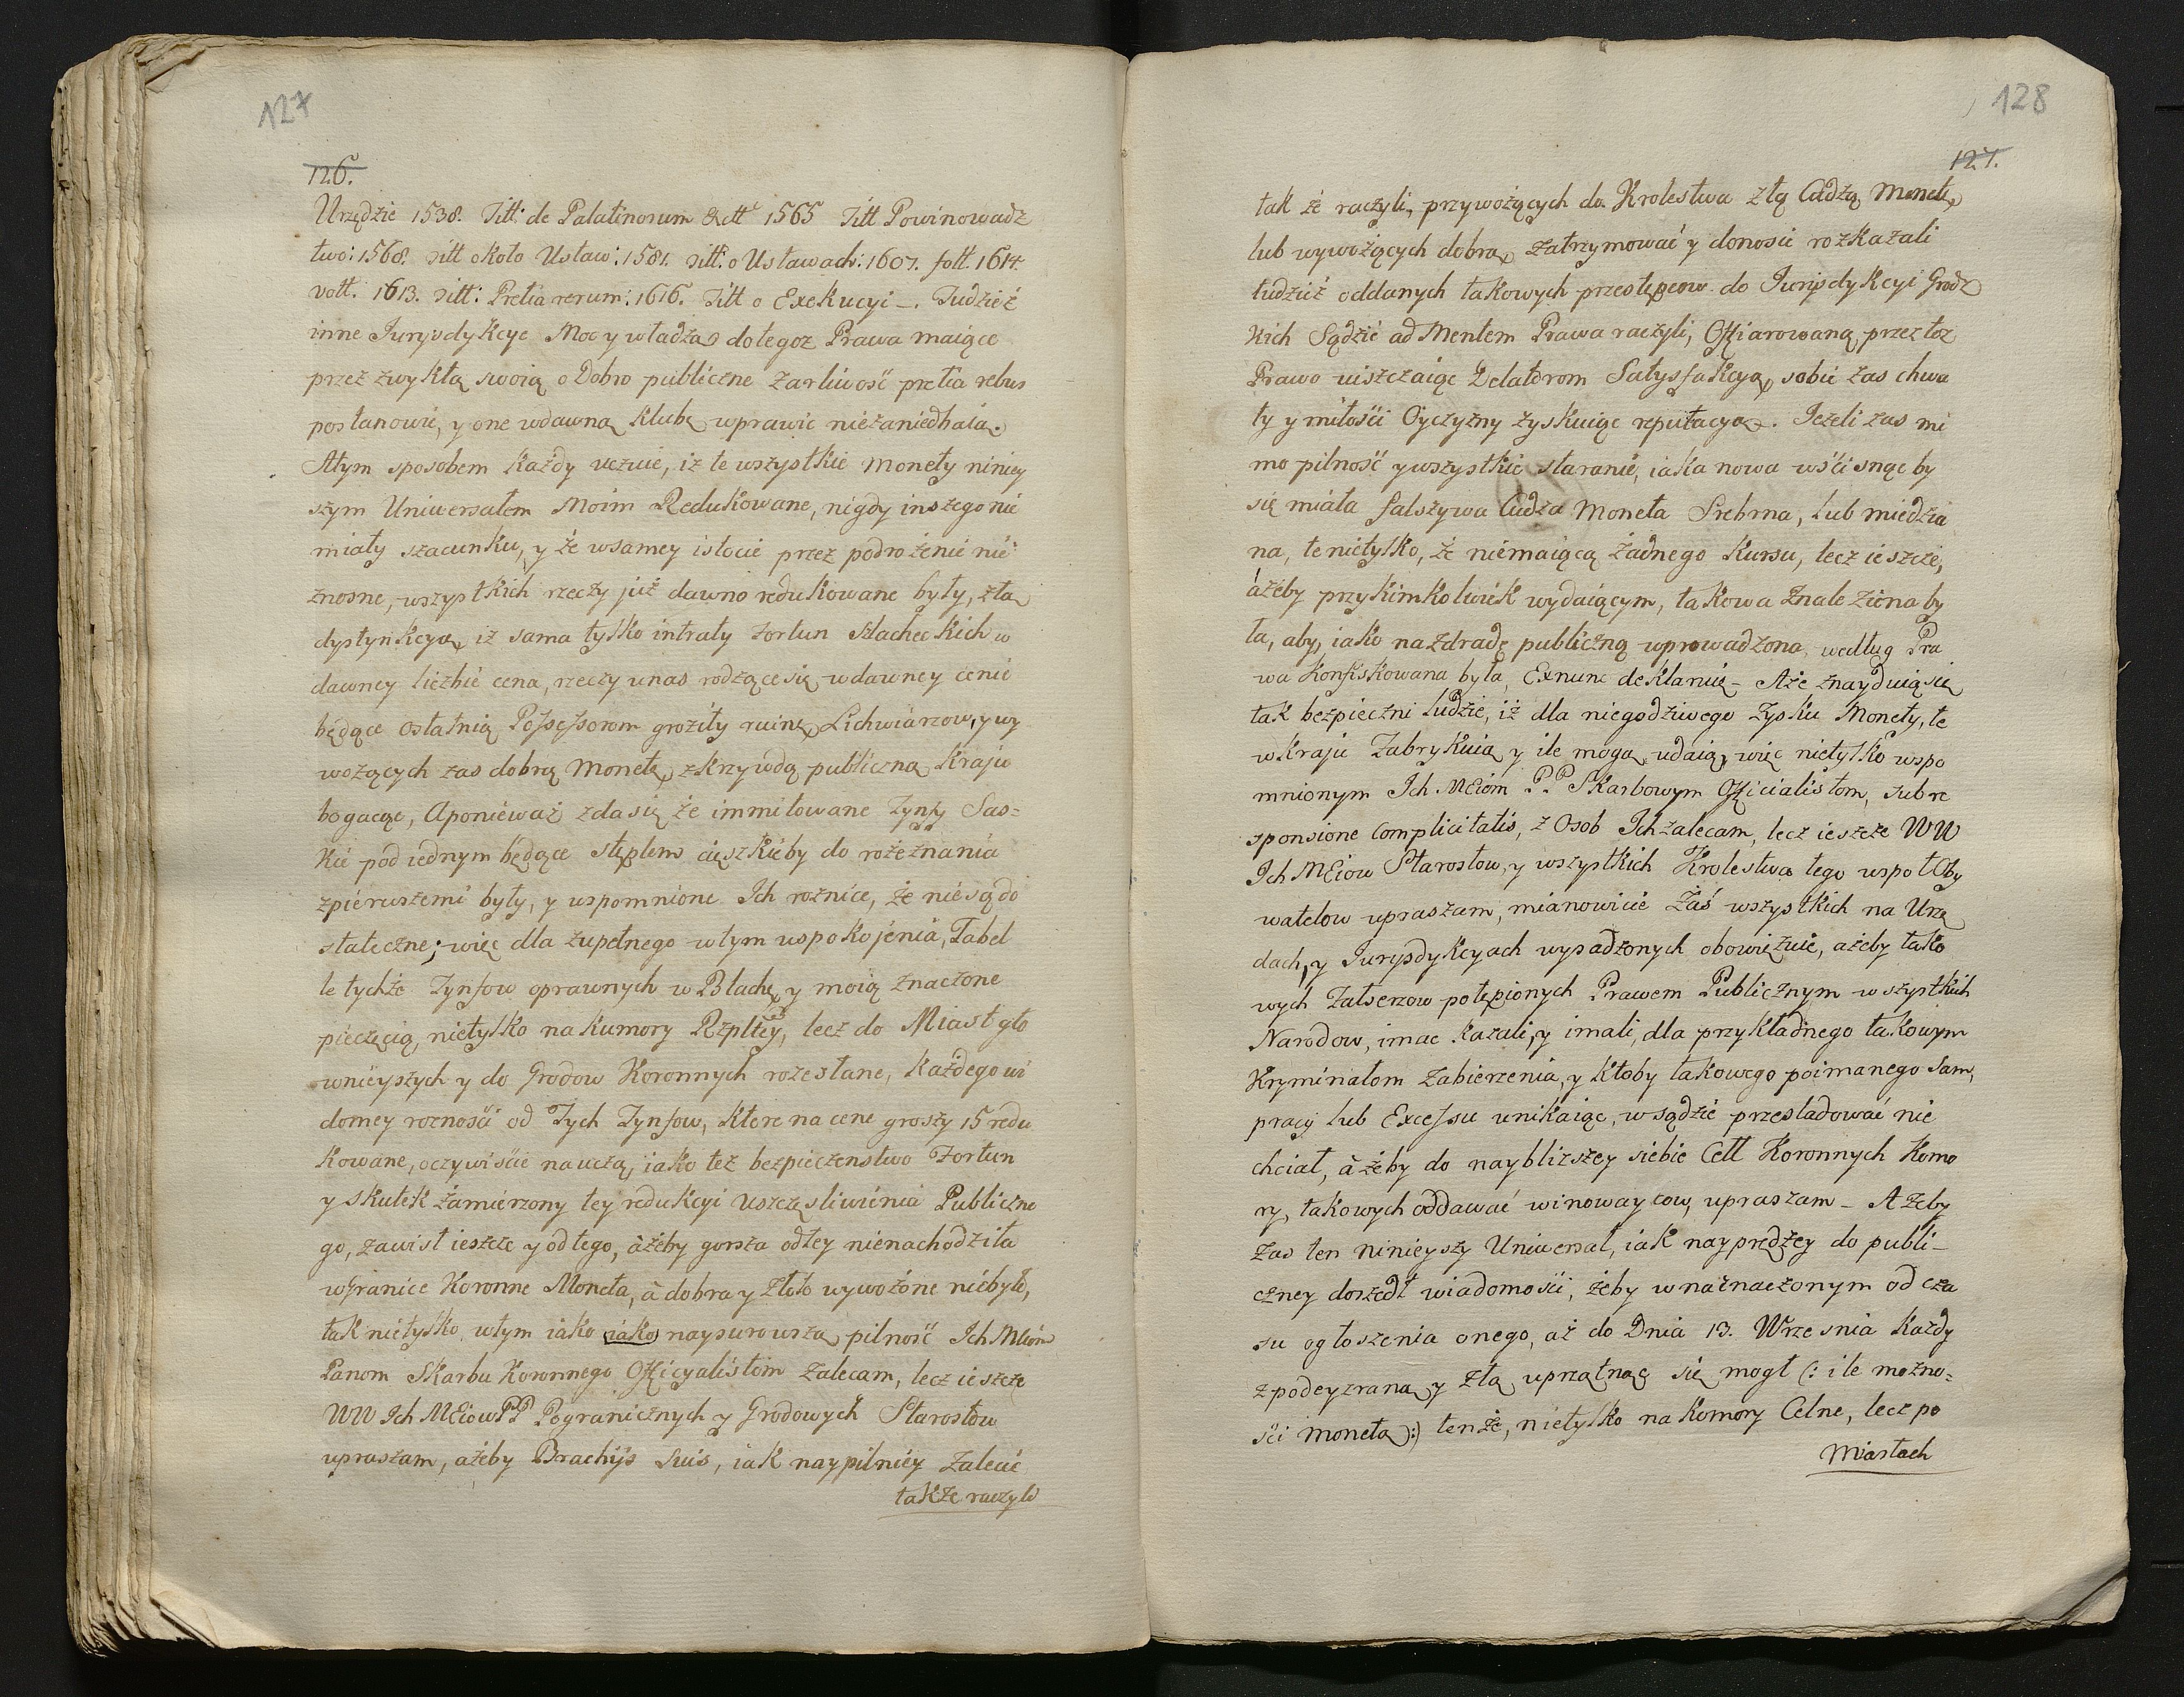 127
126.
Urzędzie 1538. Titt: de Palatinorum &ctt 1565 Titt Powinowadz
two: 1568. titt około Ustaw: 1581. titt: o Ustawach: 1607. foll. 1614.
voll. 1613. titt: Pretia rerum: 1616. Titt o Exekucyi –. Tudzież
inne Jurysdykcye Moc y władzą do tegoz Prawa maiące
przez zwykłą swoią o Dobro publiczne żarliwość pretia rebus
postanowić, y one wdawną klubę wprawic niezaniedbaią.
Atym sposobem każdy uczuie, iż te wszystkie monety niniey
szym Uniwersałem Moim Redukowane, nigdy inszego nie
miały szacunku, y że wsamey istocie przez podrożenie nie
znosne, wszystkich rzeczy już dawno redukowane były, ztą
dystynkcyą, iż sama tylko intraty Fortun szlacheckich w
dawney liczbie cena, rzeczy unas rodzące się wdawney cenie
będące ostatnią Possessorom groziły ruinę, Lichwiarzow, y wy
wożących zas dobrą monetę, zkrzywdą publiczną kraju
bogacąc, Aponieważ zda się że immitowane Tynfy Sas=
kie pod iednym będące stęplem cięszkieby do rozeznania
zpierwszemi były, y wspomnione Ich roznice, że nie są do
stateczne; więc dla zupełnego wtym uspokojenia, Tabel
le tychże Tynfow oprawnych w Blachę, y moią znaczone
pieczęcią, nietylko na kumory Rzpltey, lecz do Miast gło
wnieyszych y do Grodow Koronnych rozesłane, każdego wi
domey roznosci od Tych Tynfow, ktore na cene groszy 15 redu
kowane, oczywiście nauczą, iako też bezpieczenstwo Fortun
y skutek zamierzony tey redukcyi uszczęsliwienia Publiczne
go, zawisł ieszcze y od tego, ażeby gorsza od tey nienachodziła
wGranice Koronne Moneta, à dobra y złoto wywożone niebyło,
tak nietylko wtym iako iako naysurowszą pilność Ich Mciom
Panom Skarbu Koronnego Officyalistom zalecam, lecz ieszcze
WW Ich MCiow PP Pogranicznych y Grodowych Starostow
upraszam, ażeby Brachijs suis, iak naypilniey zalecić
także raczyli
128
127.
tak że raczyli, przywożących do Krolestwa złą Cudzą Monetę,
lub wywożących dobrą, zatrzymować y donosić rozkazali
tudzież oddanych takowych przestępcow do Jurisdykcyi Grodz
kich Sądzić ad Mentem Prawa raczyli, Offiarowaną przez toz
Prawo uiszczaiąc Delatorom Satysfakcyą, sobie zas chwa
ły y miłości Oyczyzny zyskuiąc reputacyą. Jeżeli zas mi
mo pilność y wszystkie staranie, iaka nowa wścisnąc by
się miała fałszywa Cudza Moneta Srebrna, lub miedzia
na, te nietylko, że niemaiącą żadnego kursu, lecz ieszcze,
ażeby przykimkolwiek wydaiącym, takowa znaleziona by
ła, aby, iako na zdradę publiczną wprowadzona, według Pra
wa konfiskowana była, Exnunc deklaruię – Aże znayduią się
tak bezpieczni ludzie, iż dla niegodziwego zysku Monety, te
wkraju Fabrykuią y ile mogą, udaią, więc nietylko wspo
mnionym Ich MCiom PP Skarbowym Officialistom, sub re
sponsione complicitatis, z Osob Ich zalecam, lecz ieszcze WW
Ich MCiow Starostow, y wszystkich Krolestwa tego wspoł Oby
watelow upraszam, mianowicie Zaś wszystkich na Urzę
dach, y Jurysdykcyach wysadzonych obowięzuię, ażeby tako
wych Fałszerzow potępionych Prawem Publicznym wszystkich
Narodow, imac kazali, y imali, dla przykładnego takowym
Kryminałom zabierzenia, y ktoby takowego poimanego sam,
pracy lub Excessu unikaiąc, w sądzie przesladować nie
chciał, àżeby do naybliższey siebie Cell Koronnych Komo
ry, takowych oddawać winowaycow, upraszam – Ażeby
Zas ten ninieyszy Uniwersał, iak nayprędzey do publi–
czney doszedł wiadomości, żeby wnaznaczonym od cza
su ogłoszenia onego, aż do Dnia 13. Wrzesnia każdy
zpodeyzraną y złą uprzątnąc się mogł (: ile możno=
ści monetą:) tenże, nietylko na Komory Celne, lecz po
Miastach